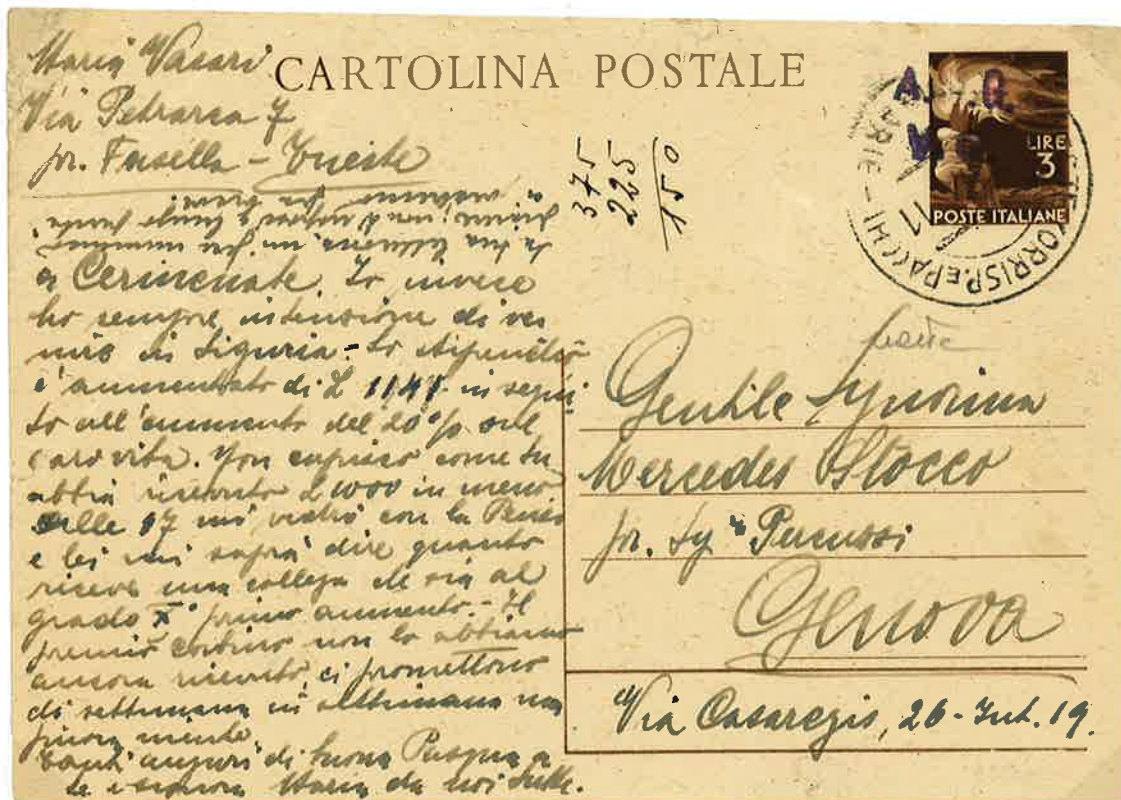 Maria Vasari
Via Petrarca 7
pr. Fasella - Trieste
CARTOLINA POSTALE
A.M.G.
V.G.
LIRE
3
POSTE ITALIANE
CORRISP. E PACCHI
375
225
150
a Cermenate. Io invece
ho sempre intenzione di ve
nire in Liguria - Lo stipendio
è aumentato di £ 1141 in segui
to all'aumento del 20% sul
caro vita. Non capisco come tu
abbia ricevuto £ 1000 in meno.
Alle 17 mi vedrò con la
e lei mi saprà dire quanto
riceve una collega che sia al
grado X° primo aumento. - Il
premio non lo abbiamo
ancora ricevuto, ci promettono
di settimana in settimana ma
finora niente.
Tanti auguri di buona Pasqua a
te e signora Maria da noi tutte.
Gentile Signorina
Mercedes Stocco
pr. Sig.
Genova
Via Casaregis, 26 - Int. 19.